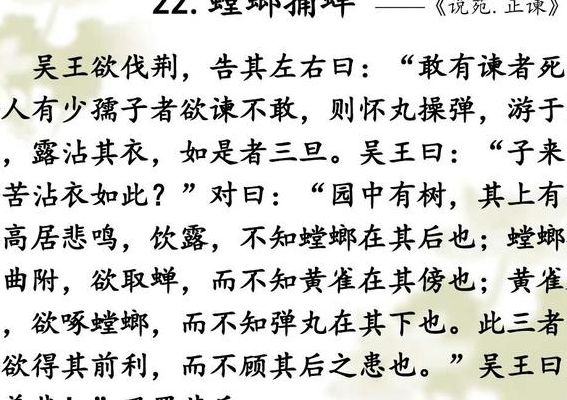 22. 螳螂捕蝉 ——《说苑. 正谏》
吴王欲伐荆，告其左右曰：“敢有谏者死
人有少孺子者欲谏不敢，则怀丸操弹，游于
，露沾其衣，如是者三旦。吴王曰：“子来
苦沾衣如此？”对曰：“园中有树，其上有
高居悲鸣，饮露，不知螳螂在其后也；螳螂
曲附，欲取蝉，而不知黄雀在其傍也；黄雀
，欲啄螳螂，而不知弹丸在其下也。此三者
欲得其前利，而不顾其后之患也。”吴王曰